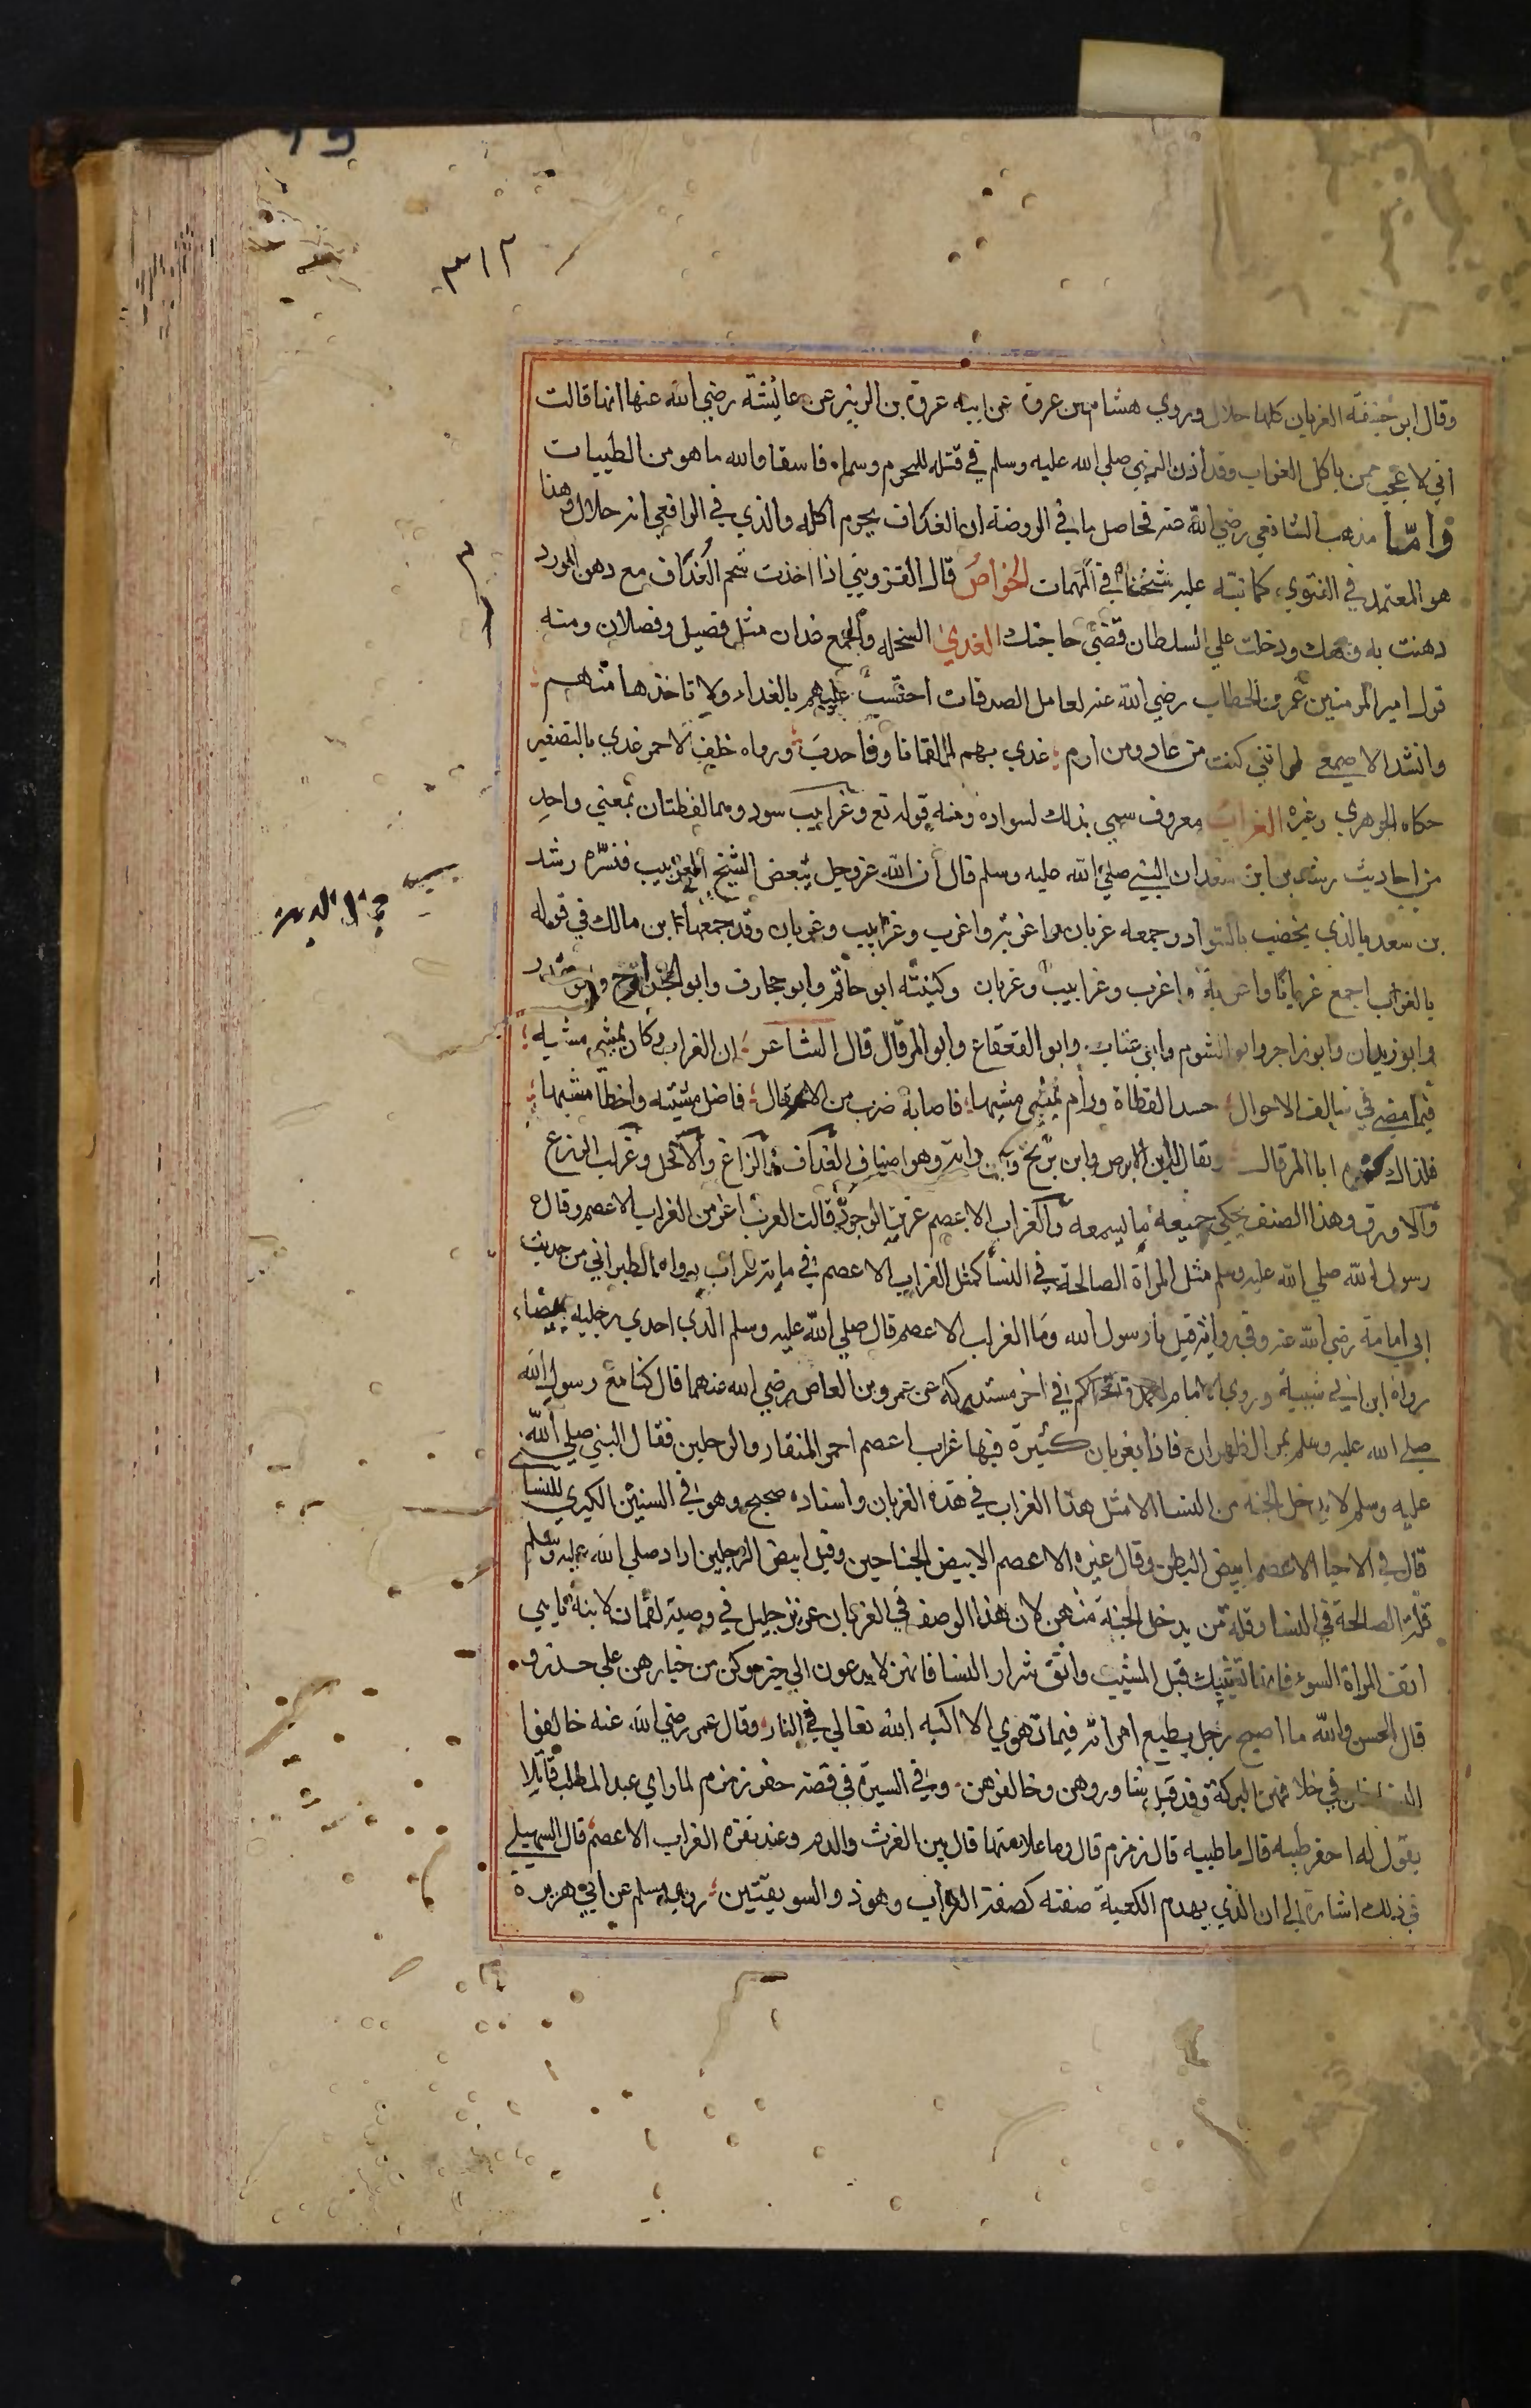 ٣١٢
وقال ابو حنيفة الغربان كلها حلال وروي هشام بن عروة عن ابيه عروة بن الزبير عن عائشة رضي الله عنها انها قالت
اني لا عجب ممن ياكل الغراب وقد اذن النبي صلي الله عليه وسلم في قتله للمحرم وسماه فاسقا والله ما هو من الطيبات
وامّا مذهب الشافعي رضي الله عنه فحاصل ما في الروضة ان الغداف يحرم اكله والذي في الرافعي انه حلال وهذا
هو المعتمد في الفتوي كما نبّه عليه شيخنا في المهمات الخواص قال القزويني اذا اخذت شحم الغداف مع دهن الورد
دهنت به وجهك ودخلت علي السلطان قضي حاجتك الغدي السخلة والجمع غدان مثل فصيل وفصلان ومنه
قول امير المومنين عمر بن الخطاب رضي الله عنه لعامل الصدقات احتسب عليهم بالغداء ولا تاخذها منهم
وانشد الاصمعي لو انني كنت من عاد ومن ارم غدي بهم لقمانا وذا جدن ورواه خلف الاحمر غدي بالتصغير
حكاه الجوهري وغيره الغراب معروف سمي بذلك لسواده ومنه قوله تع وغرابيب سود وهما لفظتان بمعني واحد
من احاديث رشد بن سعد ان النبي صلي الله عليه وسلم قال ان الله عز وجل يبغض الشيخ الغربيب فسّره رشد
بن سعد بالذي يخضب بالسواد وجمعه غربان واغربة واغرب وغرابيب وغربان وقد جمعها ابن مالك في قوله
بالغراب اجمع غرابا واغربة واغرب وغرابيب وغربان وكنيته ابو حاتم وابو حجارف وابو الجراح وابو حذر
وابو زيدان وابو زاجر وابو الشوم وابو غياث وابو القعقاع وابو المرقال قال الشاعر ان الغراب وكان يمشي مشيه
فيما مضي في سالف الاحوال حسد القطاة ورام يمشي مشيها فاصابه ضرب من العقال فاضل مشيته واخطا مشيها
فلذاك كنوه ابا المرقال ويقال له ابن الابرص وابن بريح وابن داية وهو اصناف الغداف والزاغ والاكحل وغراب الزرع
والاورق وهذا الصنف يحكي جميعه ما يسمعه والغراب الاعصم عزيز الوجود قالت العرب اعز من الغراب الاعصم وقال
رسول الله صلي الله عليه وسلم مثل المراة الصالحة في النسا كمثل الغراب الاعصم في ماية غراب رواه الطبراني من حديث
ابي امامة رضي الله عنه وفي رواية قيل يا رسول الله وما الغراب الاعصم قال صلي الله عليه وسلم الذي احدي رجليه بيضاء
رواه ابن ابي شيبة وروي الامام احمد والحاكم في اخر مستدركه عن عمرو بن العاص رضي الله عنهما قال كنا مع رسول الله
صلي الله عليه وسلم بمر الظهران فاذا بغربان كثيرة فيها غراب اعصم احمر المنقار والرجلين فقال النبي صلي الله
عليه وسلم لا يدخل الجنة من النسا الا مثل هذا الغراب في هذه الغربان واسناده صحيح وهو في السنن الكبري للنسا
قال في الاحيا الاعصم ابيض البطن وقال غيره الاعصم الابيض الجناحين وقيل ابيض الرجلين اراد صلي الله عليه وسلم
قلة الصالحة في النسا وقلة من يدخل الجنة منهن لان هذا الوصف في الغربان عزيز جليل في وصية لقمان لابنه يا بني
اتق المراة السوء فانها تشيبك قبل المشيب واتق شرار النسا فانهن لا يدعون الي خير وكن من خيارهن علي حذر و
قال الحسن والله ما اصبح رجل يطيع امراته فيما تهوي الا اكبه الله تعالي في النار وقال عمر رضي الله عنه خالفوا
النسا فان في خلافهن البركة وقد قيل شاوروهن وخالفوهن وفي السيرة في قصة حفر زمزم لما راي عبد المطلب قائلا
يقول له احفر طيبه قال ما طيبه قال زمزم قال وما علامتها قال بين الفرث والدم وعند نقرة الغراب الاعصم قال السهيلي
في ذلك اشارة الي ان الذي يهدم الكعبة صفته كصفة الغراب وهو ذو السويقتين روي مسلم عن ابي هريرة